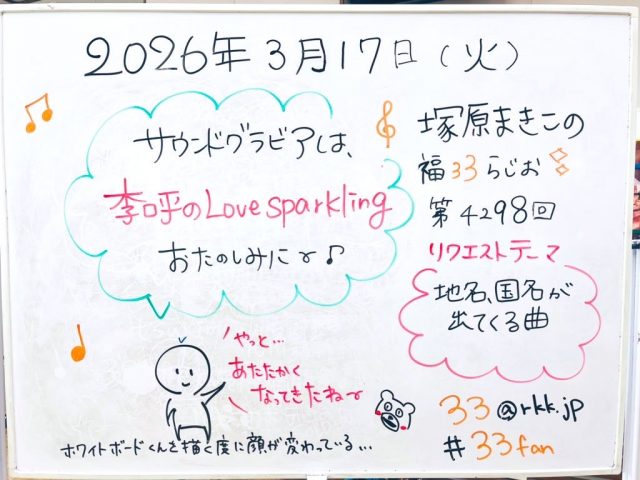 2026年3月17日(火)
サウンドグラビアは、
李口乎のLove sparkling
おたのしみに〜♪
塚原まきこの
福33らじお
第4298回
リクエストテーマ
地名、国名が
出てくる曲
やっと…
あたたかく
なってきたね〜
ホワイトボードくんを描く度に顔が変わっている…
33@rkk.jp
#33fan